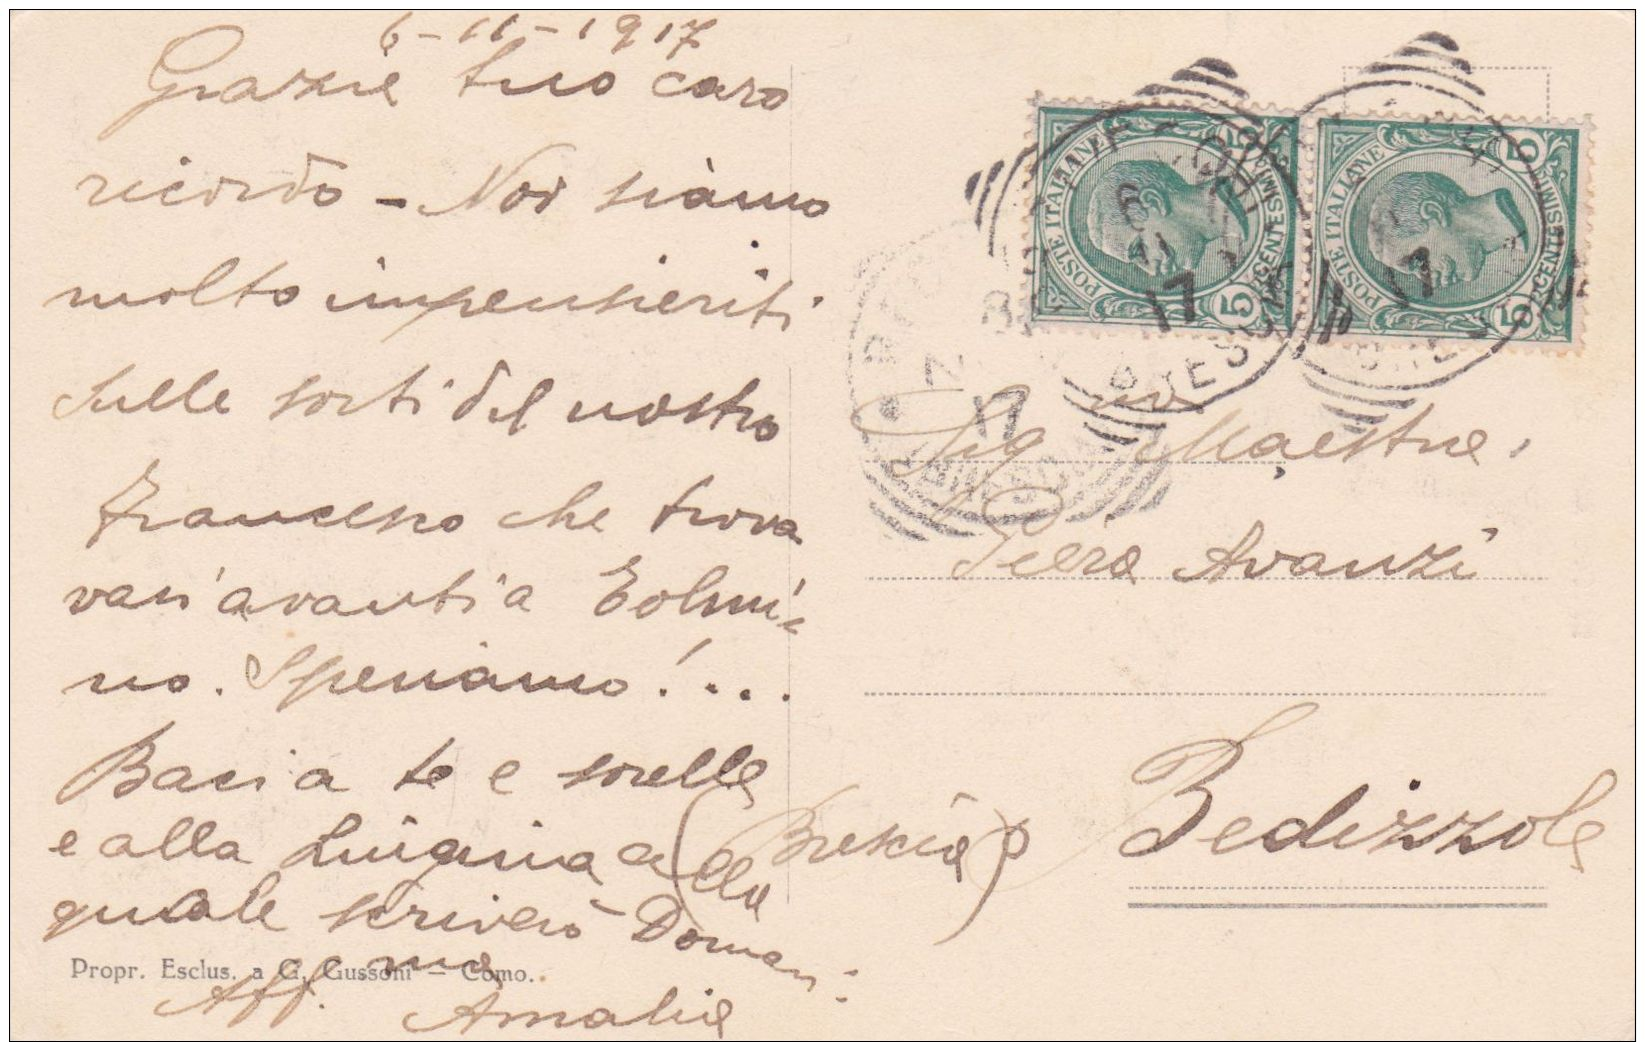 6-11-1917
Grazie tuo caro
ricordo - Noi siamo
molto impensieriti
sulle sorti del nostro
Francesco che trova
vasi avanti a Tolmi-
no. Speriamo!...
Baci a te e sorelle
e alla Luigina alla
quale scriverò Domani:
Aff.ma Amalia
Propr. Esclus. a G. Gussoni - Como.
POSTE ITALIANE
5 CENTESIMI 5
POSTE ITALIANE
5 CENTESIMI 5
6
11
17
17
17
BRESCIA
Sig.na Maestra,
Piera Avanzi
Bedizzole
(Brescia)